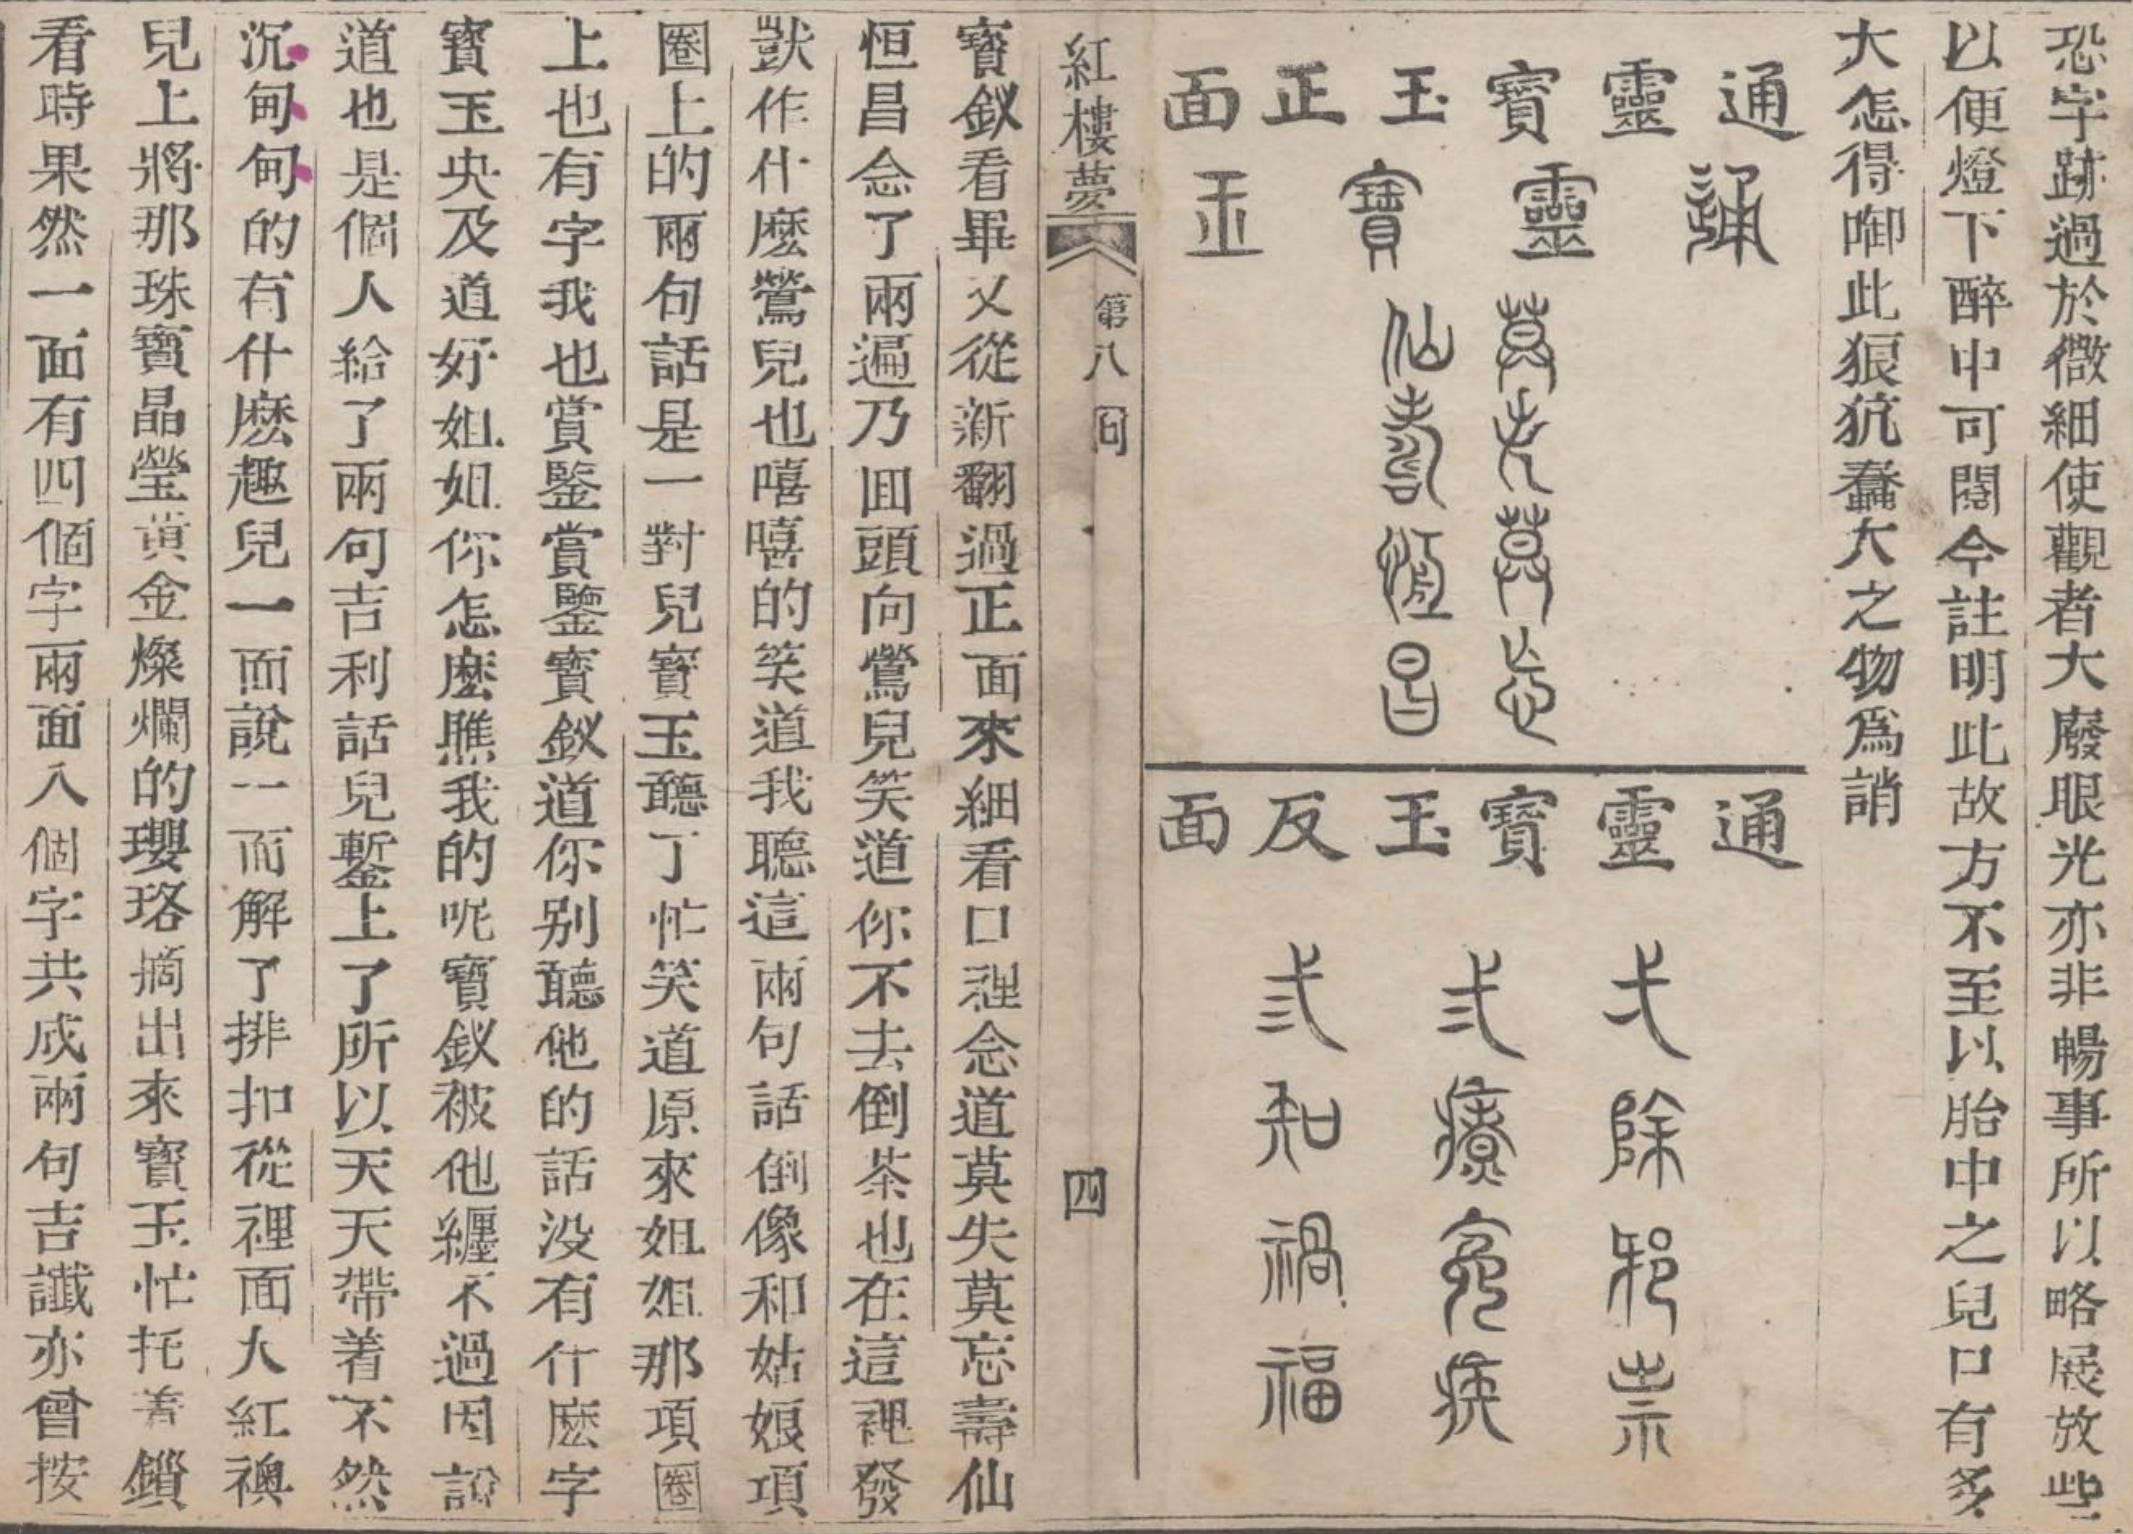 恐字跡過於微細使觀者大廢眼光亦非暢事所以略展放些
以便燈下醉中可閱今註明此故方不至以胎中之兒口有多
大怎得啣此狼犺蠢大之物爲誚
通靈寶玉正面
通靈寶玉
莫失莫忘
仙壽恒昌
通靈寶玉反面
弌除邪祟
弍療冤疾
弎知禍福
紅樓夢
第八回
四
寶釵看畢又從新翻過正面來細看口裡念道莫失莫忘壽仙
恒昌念了兩遍乃回頭向鶯兒笑道你不去倒茶也在這裡發
獃作什麽鶯兒也嘻嘻的笑道我聽這兩句話倒像和姑娘項
圈上的兩句話是一對兒寶玉聽了忙笑道原來姐姐那項圈
上也有字我也賞鑒賞鑒寶釵道你别聽他的話没有什麽字
寶玉央及道好姐姐你怎麽瞧我的呢寶釵被他纒不過因說
道也是個人給了兩句吉利話兒鏨上了所以天天帶着不然
沉甸甸的有什麽趣兒一面說一面解了排扣從裡面大紅襖
兒上將那珠寶晶瑩黃金燦爛的瓔珞摘出來寶玉忙托着鎖
看時果然一面有四個字兩面八個字共成兩句吉讖亦曾按